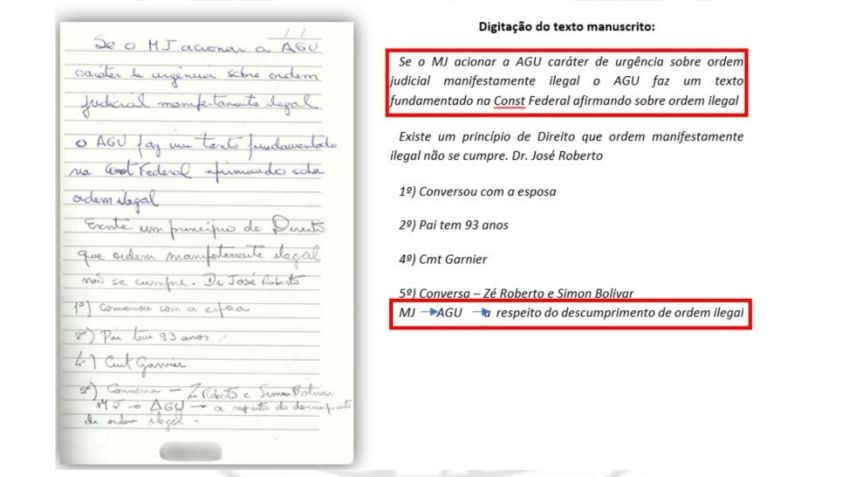 Se o MJ acionar a AGU
caráter de urgência sobre ordem
judicial manifestamente ilegal
o AGU faz um texto fundamentado
na Const Federal afirmando sobre
ordem ilegal
Existe um princípio de Direito
que ordem manifestamente ilegal
não se cumpre. Dr José Roberto
1º) Conversou com a esposa
2º) Pai tem 93 anos
4º) Cmt Garnier
5º) Conversa – Zé Roberto e Simon Bolivar
MJ → AGU → a respeito do descumprimento
de ordem ilegal -
Digitação do texto manuscrito:
Se o MJ acionar a AGU caráter de urgência sobre ordem
judicial manifestamente ilegal o AGU faz um texto
fundamentado na Const Federal afirmando sobre ordem ilegal
Existe um princípio de Direito que ordem manifestamente
ilegal não se cumpre. Dr. José Roberto
1º) Conversou com a esposa
2º) Pai tem 93 anos
4º) Cmt Garnier
5º) Conversa – Zé Roberto e Simon Bolivar
MJ → AGU → a respeito do descumprimento de ordem ilegal